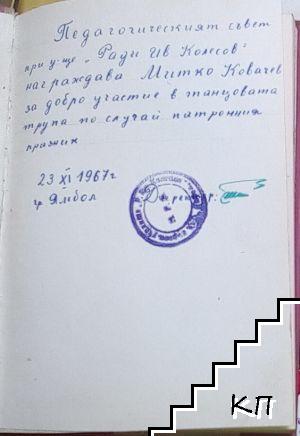 Педагогическият съвет
при у-ще „Ради Ив Колесов"
награждава Митко Ковачев
за добро участие в танцовата
трупа по случай патронния
празник
23 XI 1967г
гр Ямбол
Директор:
КП